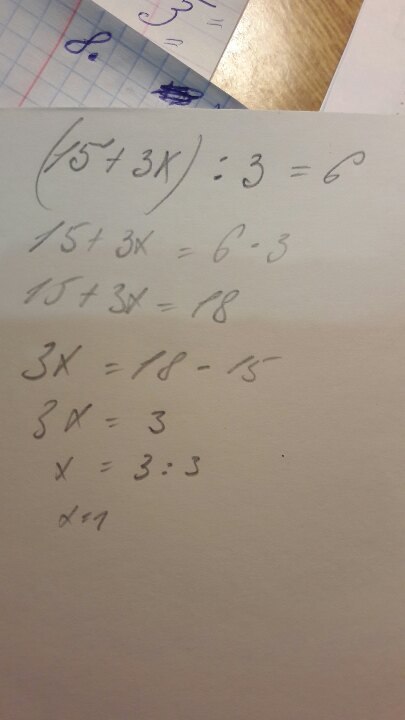 3 =
=
8.
(15 + 3x) : 3 = 6
15 + 3x = 6 · 3
15 + 3x = 18
3x = 18 - 15
3x = 3
x = 3 : 3
x = 1